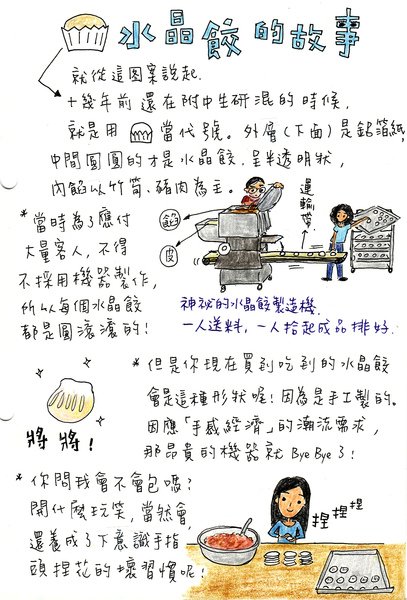 水晶餃的故事
就從這圖案說起.
十幾年前還在附中生研混的時候,
就是用 當代號。外層(下面)是鋁箔紙,
中間圓圓的才是水晶餃. 呈半透明狀,
內餡以竹筍、豬肉為主。
*當時為了應付
大量客人,不得
不採用機器製作,
所以每個水晶餃
都是圓滾滾的!
餡
皮
運輸帶
神祕的水晶餃製造機.
一人送料,一人拾起成品排好.
將將!
*但是你現在買到吃到的水晶餃
會是這種形狀呢!因為是手工製的。
因應「手感經濟」的潮流需求,
那昂貴的機器就 Bye Bye了!
*你問我會不會包嗎?
開什麼玩笑,當然會,
還養成了下意識手指
頭捏花的壞習慣呢!
捏捏捏